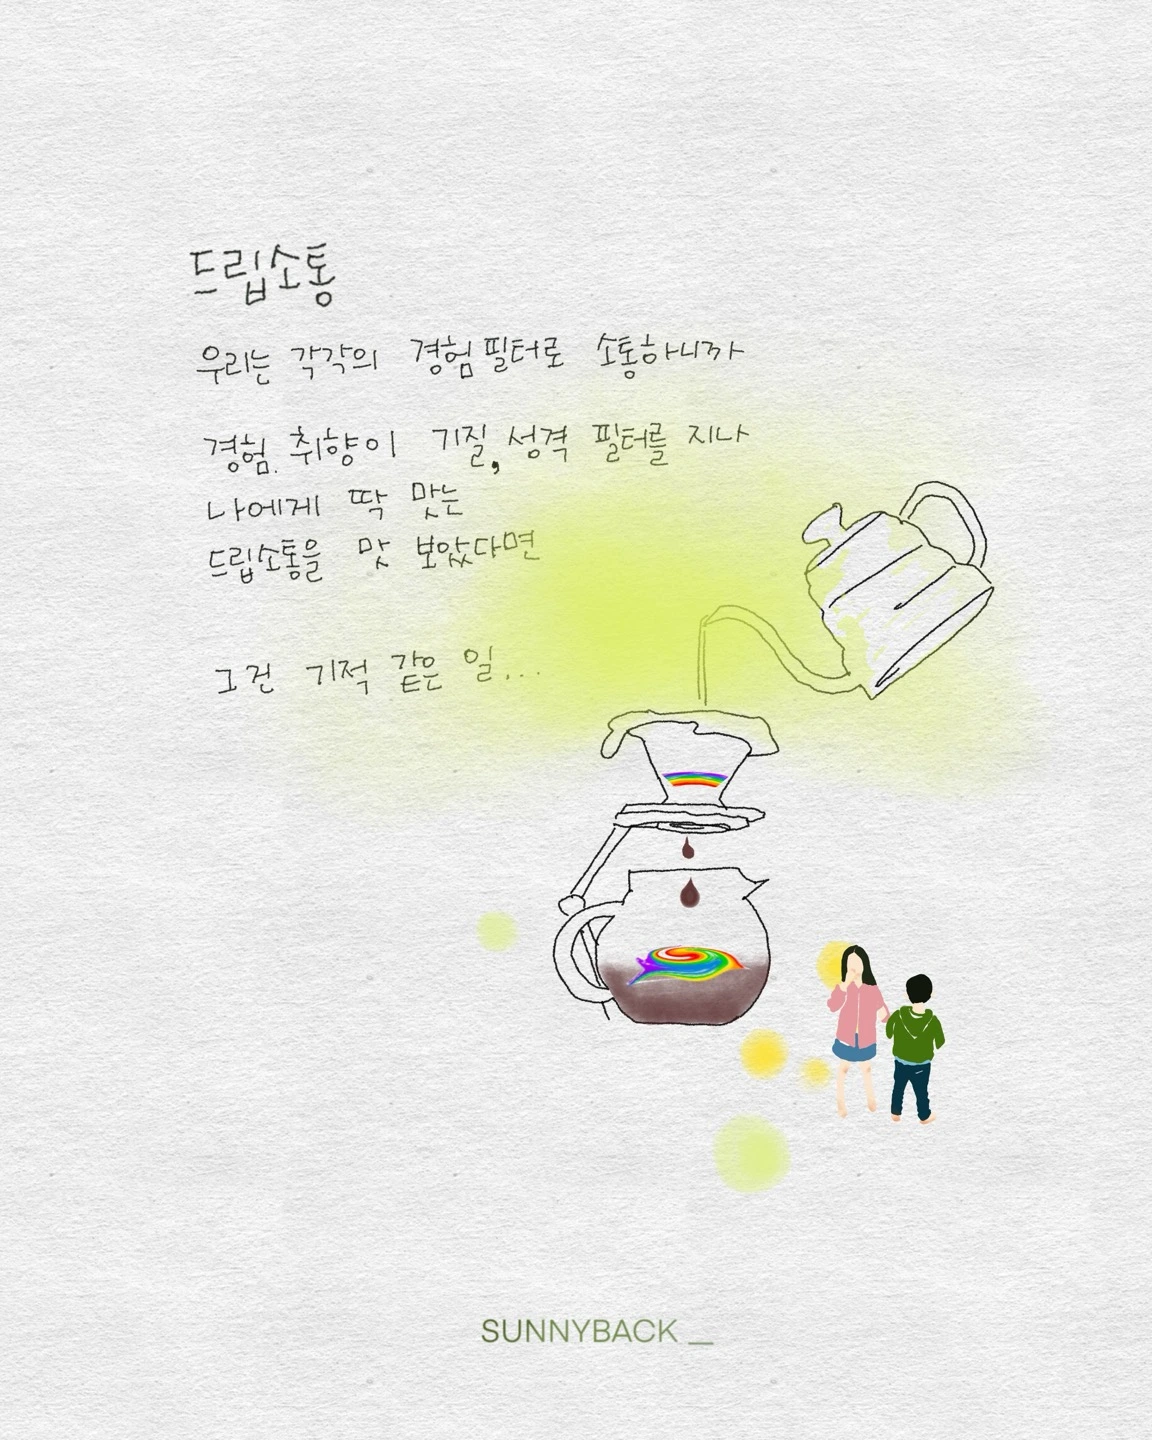 드립소통
우리는 각각의 경험필터로 소통하니까
경험. 취향이 기질, 성격 필터를 지나
나에게 딱 맞는
드립소통을 맛 보았다면
그건 기적 같은 일...
SUNNYBACK _